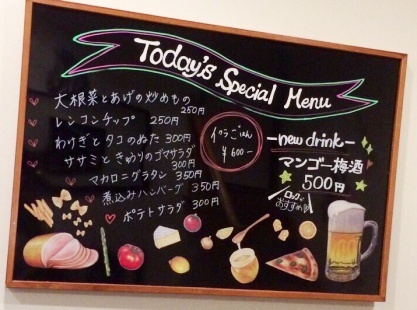 Today's Special Menu
大根菜とあげの炒めもの
250円
レンコンチップ 250円
わけぎとタコのぬた 300円
ササミときゅうりのゴマサラダ
300円
マカロニグラタン 350円
煮込みハンバーグ 350円
ポテトサラダ 300円
イクラごはん
¥600-
-new drink-
マンゴー梅酒
500円
ロックが
おすすめ